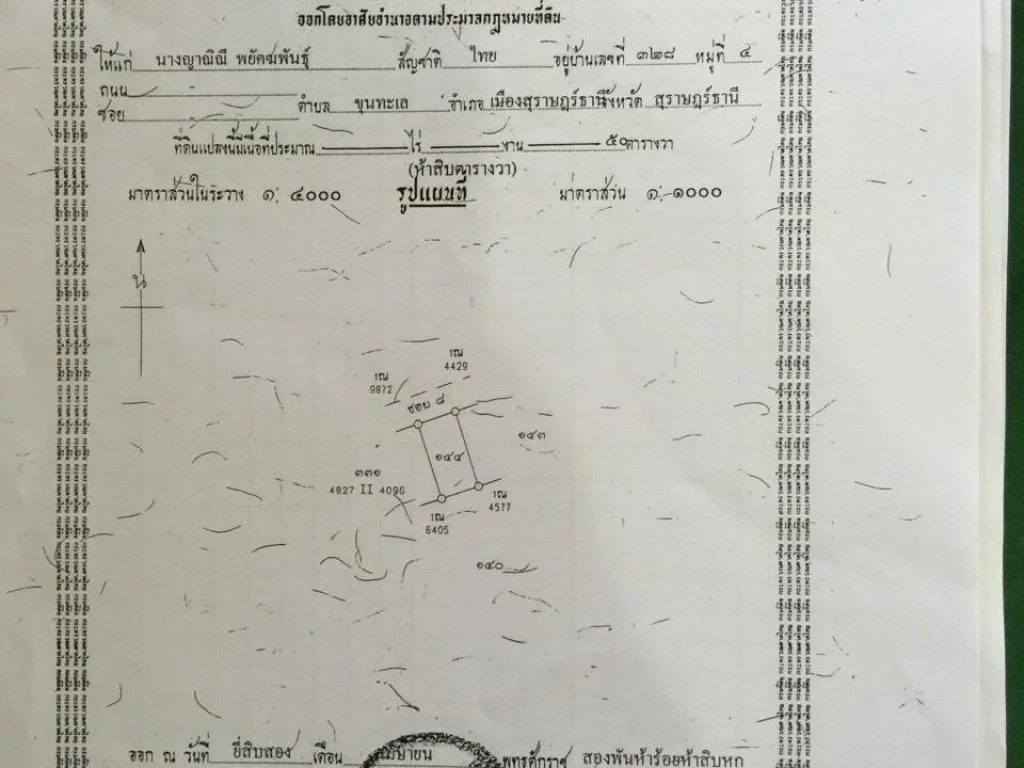 ออกโดยอาศัยอำนาจตามประมวลกฎหมายที่ดิน
ให้แก่ นางญาณิณี พยัคฆพันธุ์ สัญชาติ ไทย อยู่บ้านเลขที่ ๓๒๘ หมู่ที่ ๔
ถนน
ซอย ตำบล ขุนทะเล อำเภอ เมืองสุราษฎร์ธานี จังหวัด สุราษฎร์ธานี
ที่ดินแปลงนี้มีเนื้อที่ประมาณ ไร่ งาน ๕๐ ตารางวา
(ห้าสิบตารางวา)
มาตราส่วนในระวาง ๑: ๔๐๐๐ รูปแผนที่ มาตราส่วน ๑:๑๐๐๐
น
1ณ
4429
1ณ
9872
ซอย ๘
๑๔๓
๑๔๔
๓๓๑
4827 II 4096
1ณ
4577
1ณ
6405
๑๔๐
ออก ณ วันที่ ยี่สิบสอง เดือน เมษายน พุทธศักราช สองพันห้าร้อยห้าสิบหก